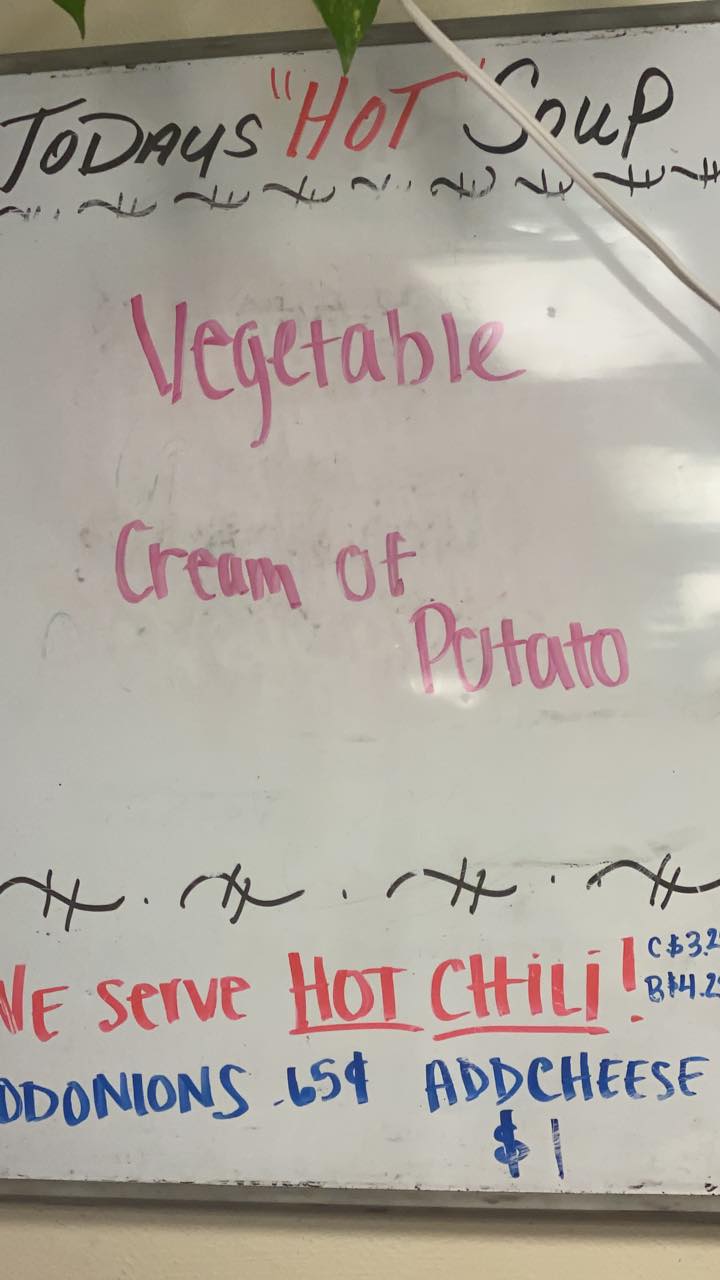 TODAYS "HOT" SOUP
Vegetable
Cream of
Potato
WE serve HOT CHILI! C $3.2
B $4.2
DDONIONS .65¢ ADDCHEESE
$1